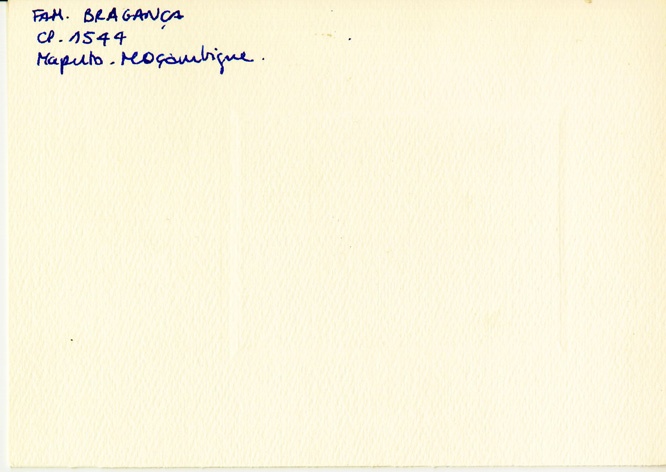 FAM. BRAGANÇA
CP. 1544
Maputo - Moçambique.